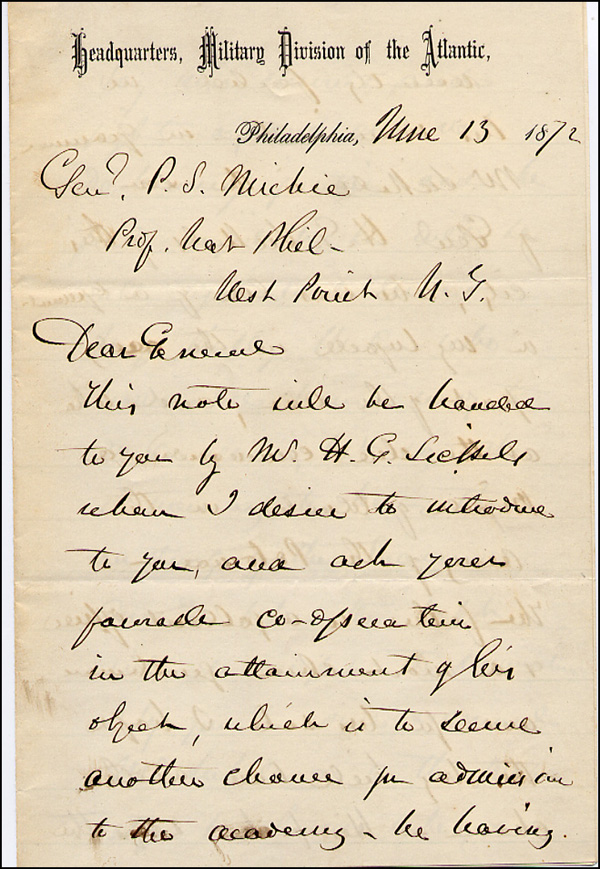 Headquarters, Military Division of the Atlantic,
Philadelphia, June 13 1872
Genl. P. S. Michie
Prof. Nat Phil-
West Point N. Y.
Dear General
This note will be handed
to you by Mr. H. G. Sickels
whom I desire to introduce
to you, and ask your
favorable co-operation
in the attainment of his
object, which is to secure
another chance for admission
to the academy - he having